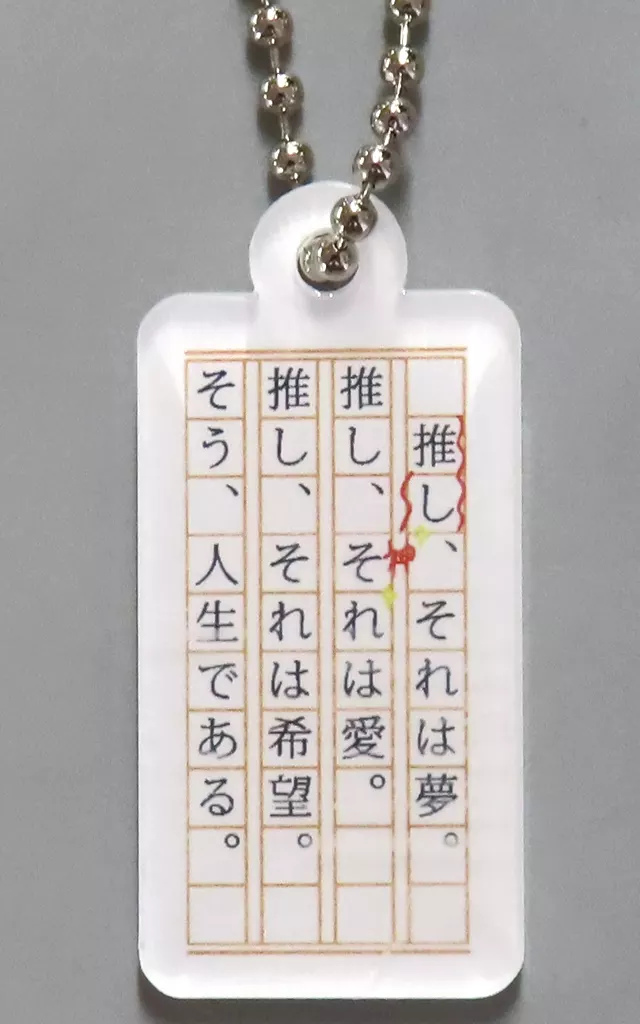 推し、それは夢。
推し、それは愛。
推し、それは希望。
そう、人生である。